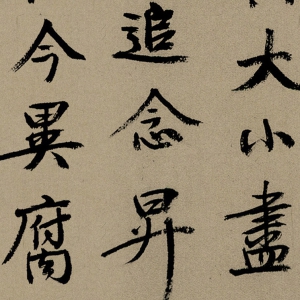 大小盡
追念昇
今異腐